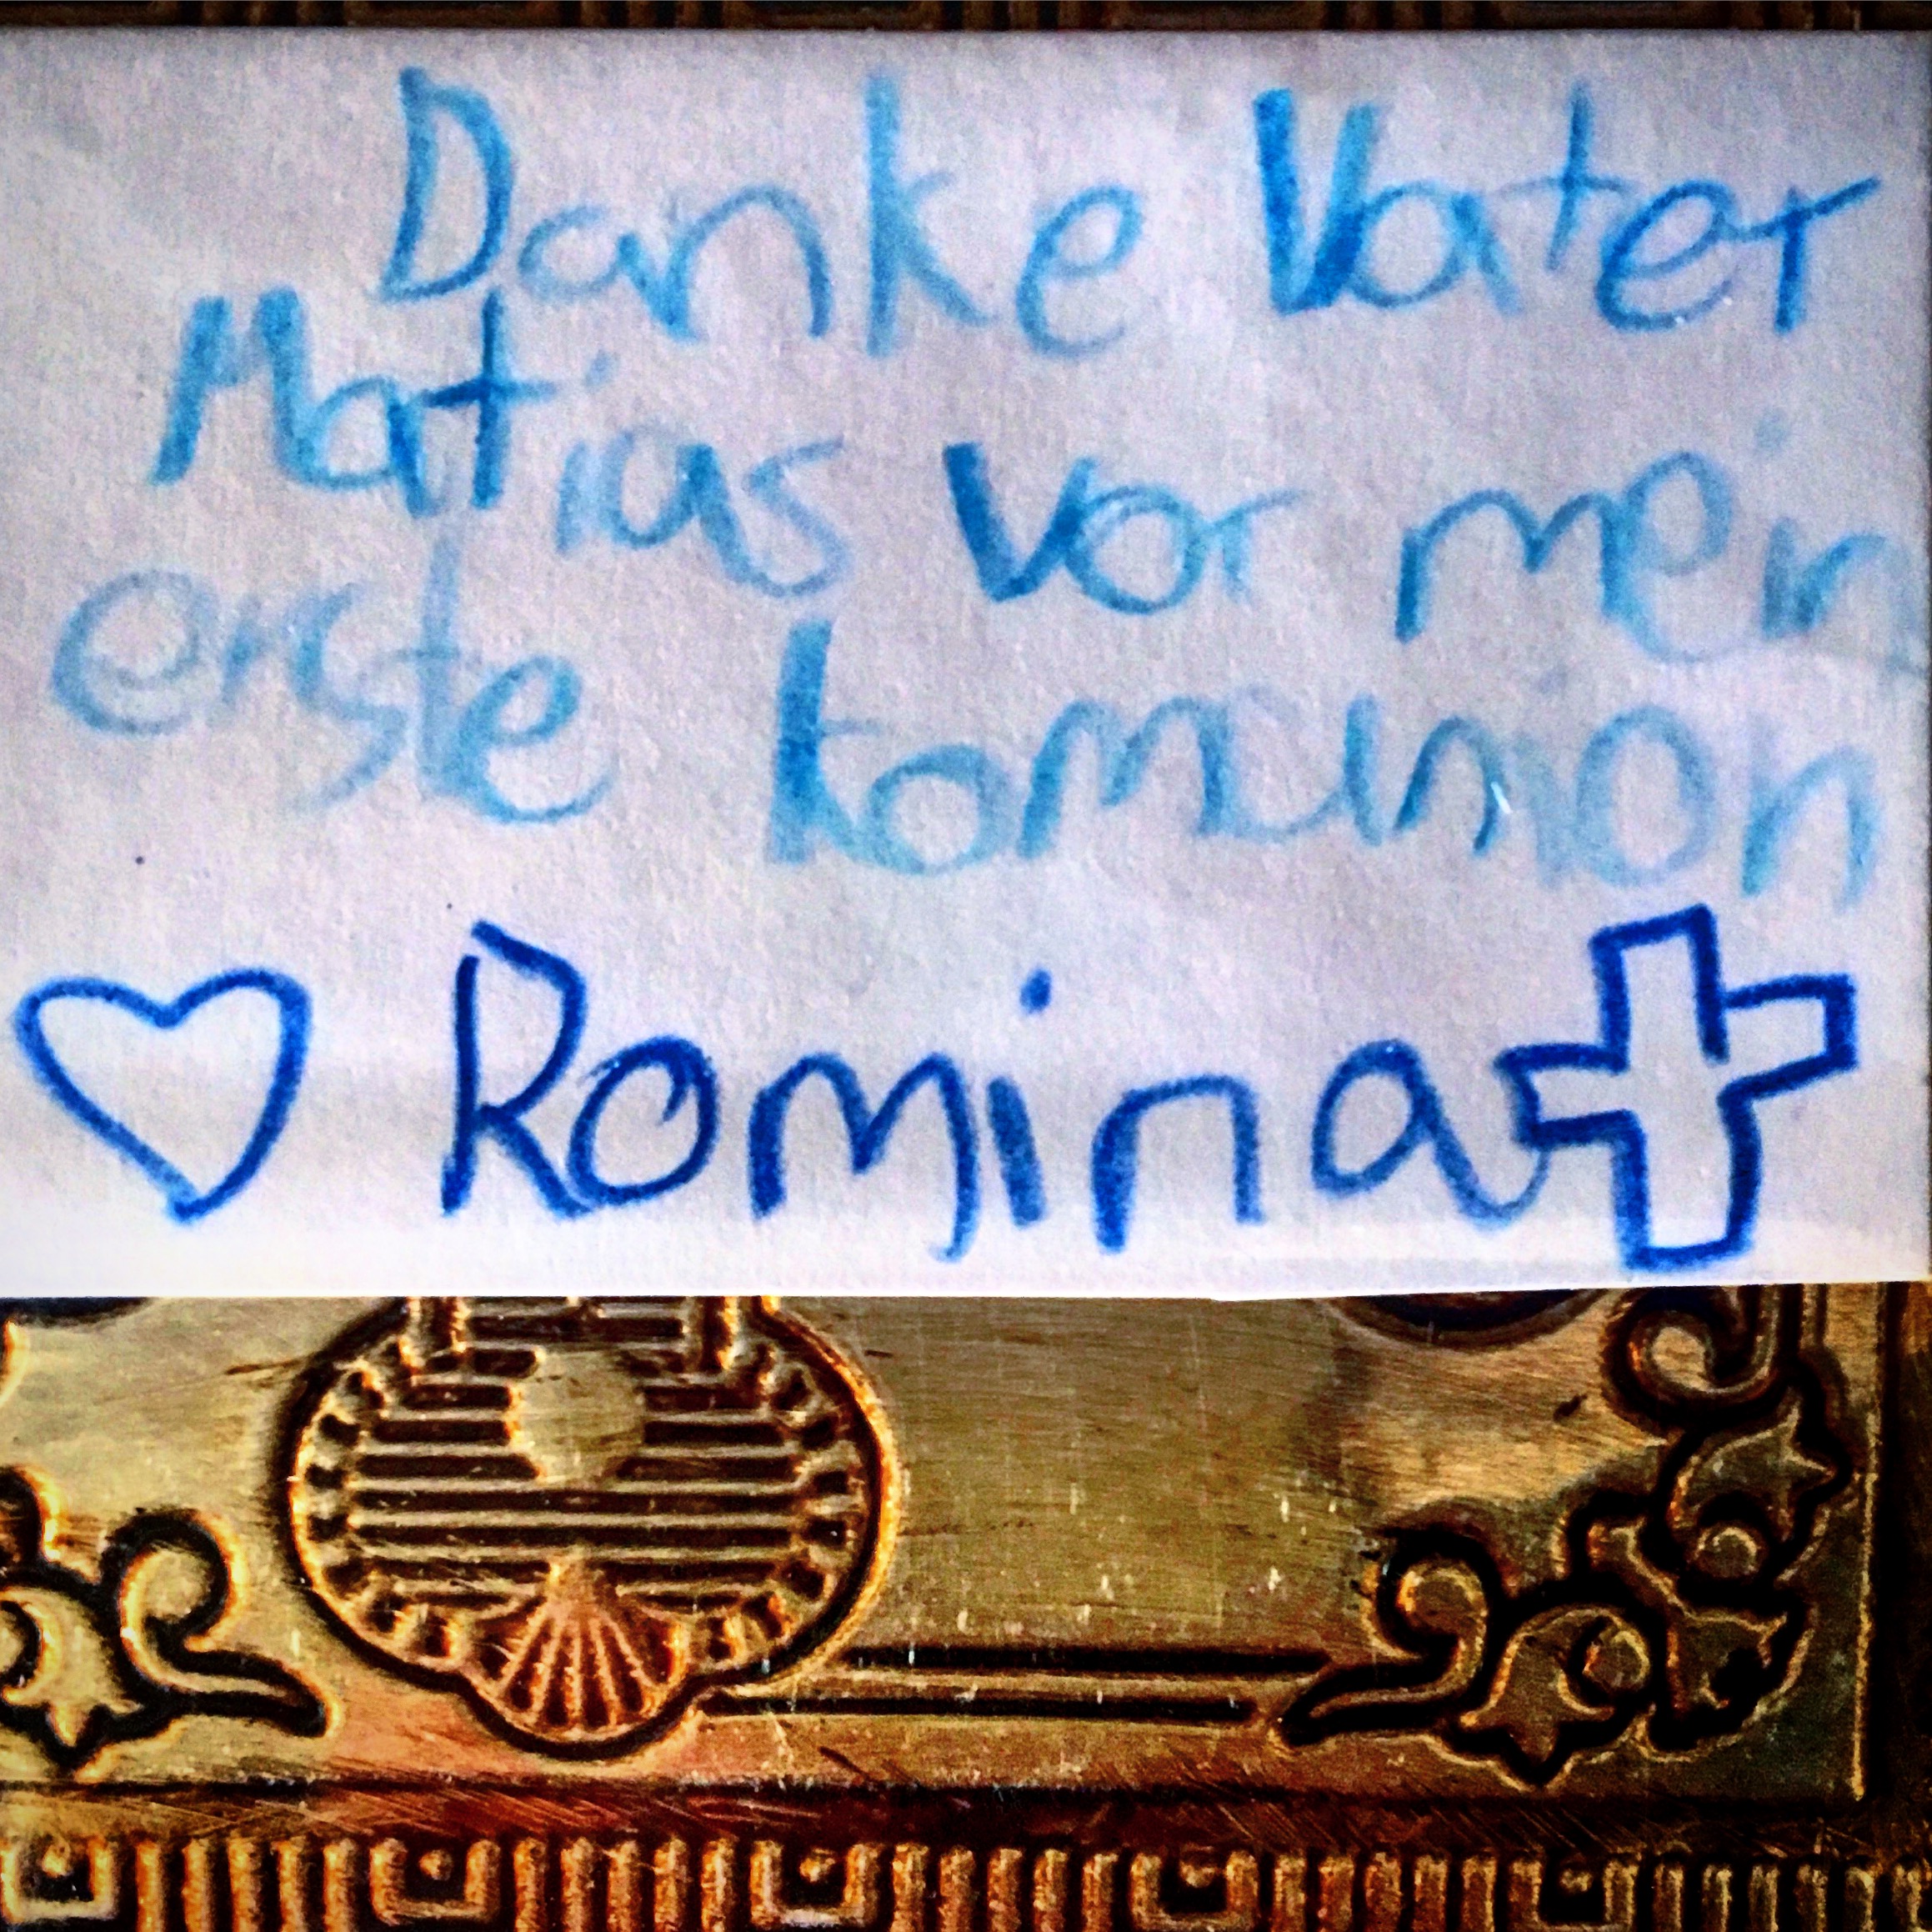 Danke Vater
Matias vor mein
erste komunion
Romina